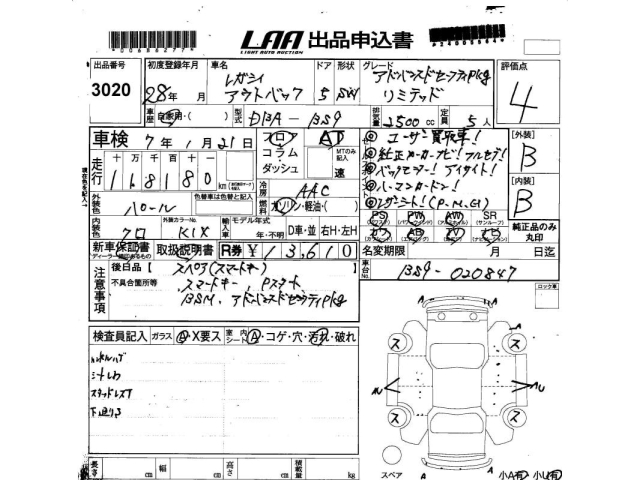 LAA 出品申込書
LIGHT AUTO AUCTION
出品番号 3020
初度登録年月 28年 1月
車名 レガシィ アウトバック
ドア 形状 5 SW
グレード アドバンスドセーフティpkg リミテッド
評価点 4
車歴 自家用・( )
型式 DBA-BS9
排気量 2500 cc
定員 5人
車検 7年 1月 21日
シフト フロア コラム ダッシュ
AT
MTのみ記入 速
◎ユーザー買取車!
◎純正メーカーナビ!フルセグ!
◎バックモニター!アイサイト!
◎ハーマンカードン!
◎レザーシート!(P.M.G)
[外装] B
[内装] B
走行 十 万 千 百 十
116180 km
冷房 AAC
燃料 ガソリン・軽油・( )
外装色 パール
色替車は色替と記入
PS PW AW SR
(パワステ) (サンルーフ)
純正品のみ丸印
内装色 クロ
外装カラーNo. K1X
輸入車
モデル年式 年・不明
D車・並 右H・左H
カワ ABG TV ナビ
新車保証書 取扱説明書
R券 ¥13,610
名変期限 月 日迄
注意事項
後日品 [ スペア3(スマートキー) ]
不具合箇所等 スマートキー、Pスタート
BSM、アドバンスドセーフティpkg
車台No. BS9-020847
ロック車
検査員記入 ガラス A・X要ス 室内シート A・コゲ・穴・汚れ・破れ
ハンドルハゲ
シートしわ
スタッドレスT
下廻りさ
ス ス
ス ス
A A
スペア
小A有 小U有
長さ cm 幅 cm 高さ cm 積載量 kg